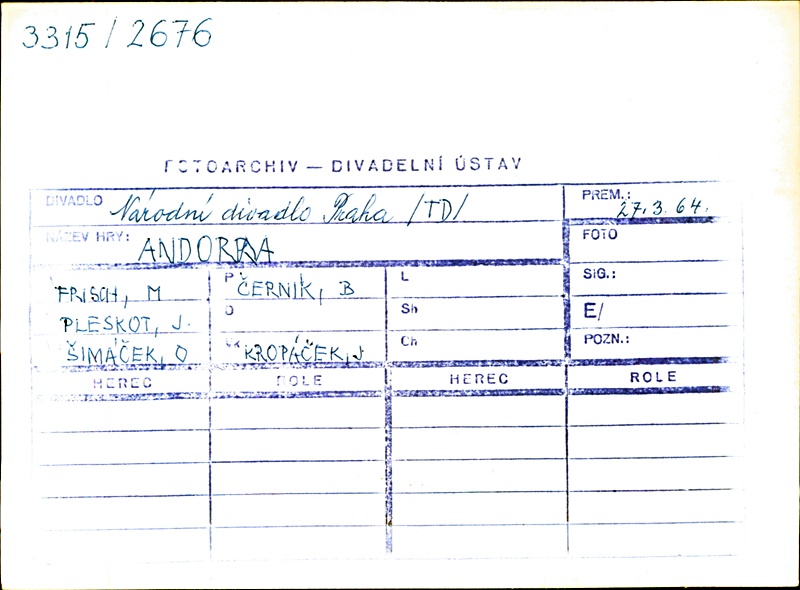 3315 / 2676
FOTOARCHIV — DIVADELNÍ ÚSTAV
DIVADLO Národní divadlo Praha /TD/
PREM.: 27.3.64.
NÁZEV HRY: ANDORRA
FOTO
FRISCH, M
P ČERNÍK, B
L
SIG.:
PLESKOT, J.
O
Sh
E/
ŠIMÁČEK, O
KROPÁČEK, J
Ch
POZN.:
HEREC ROLE HEREC ROLE